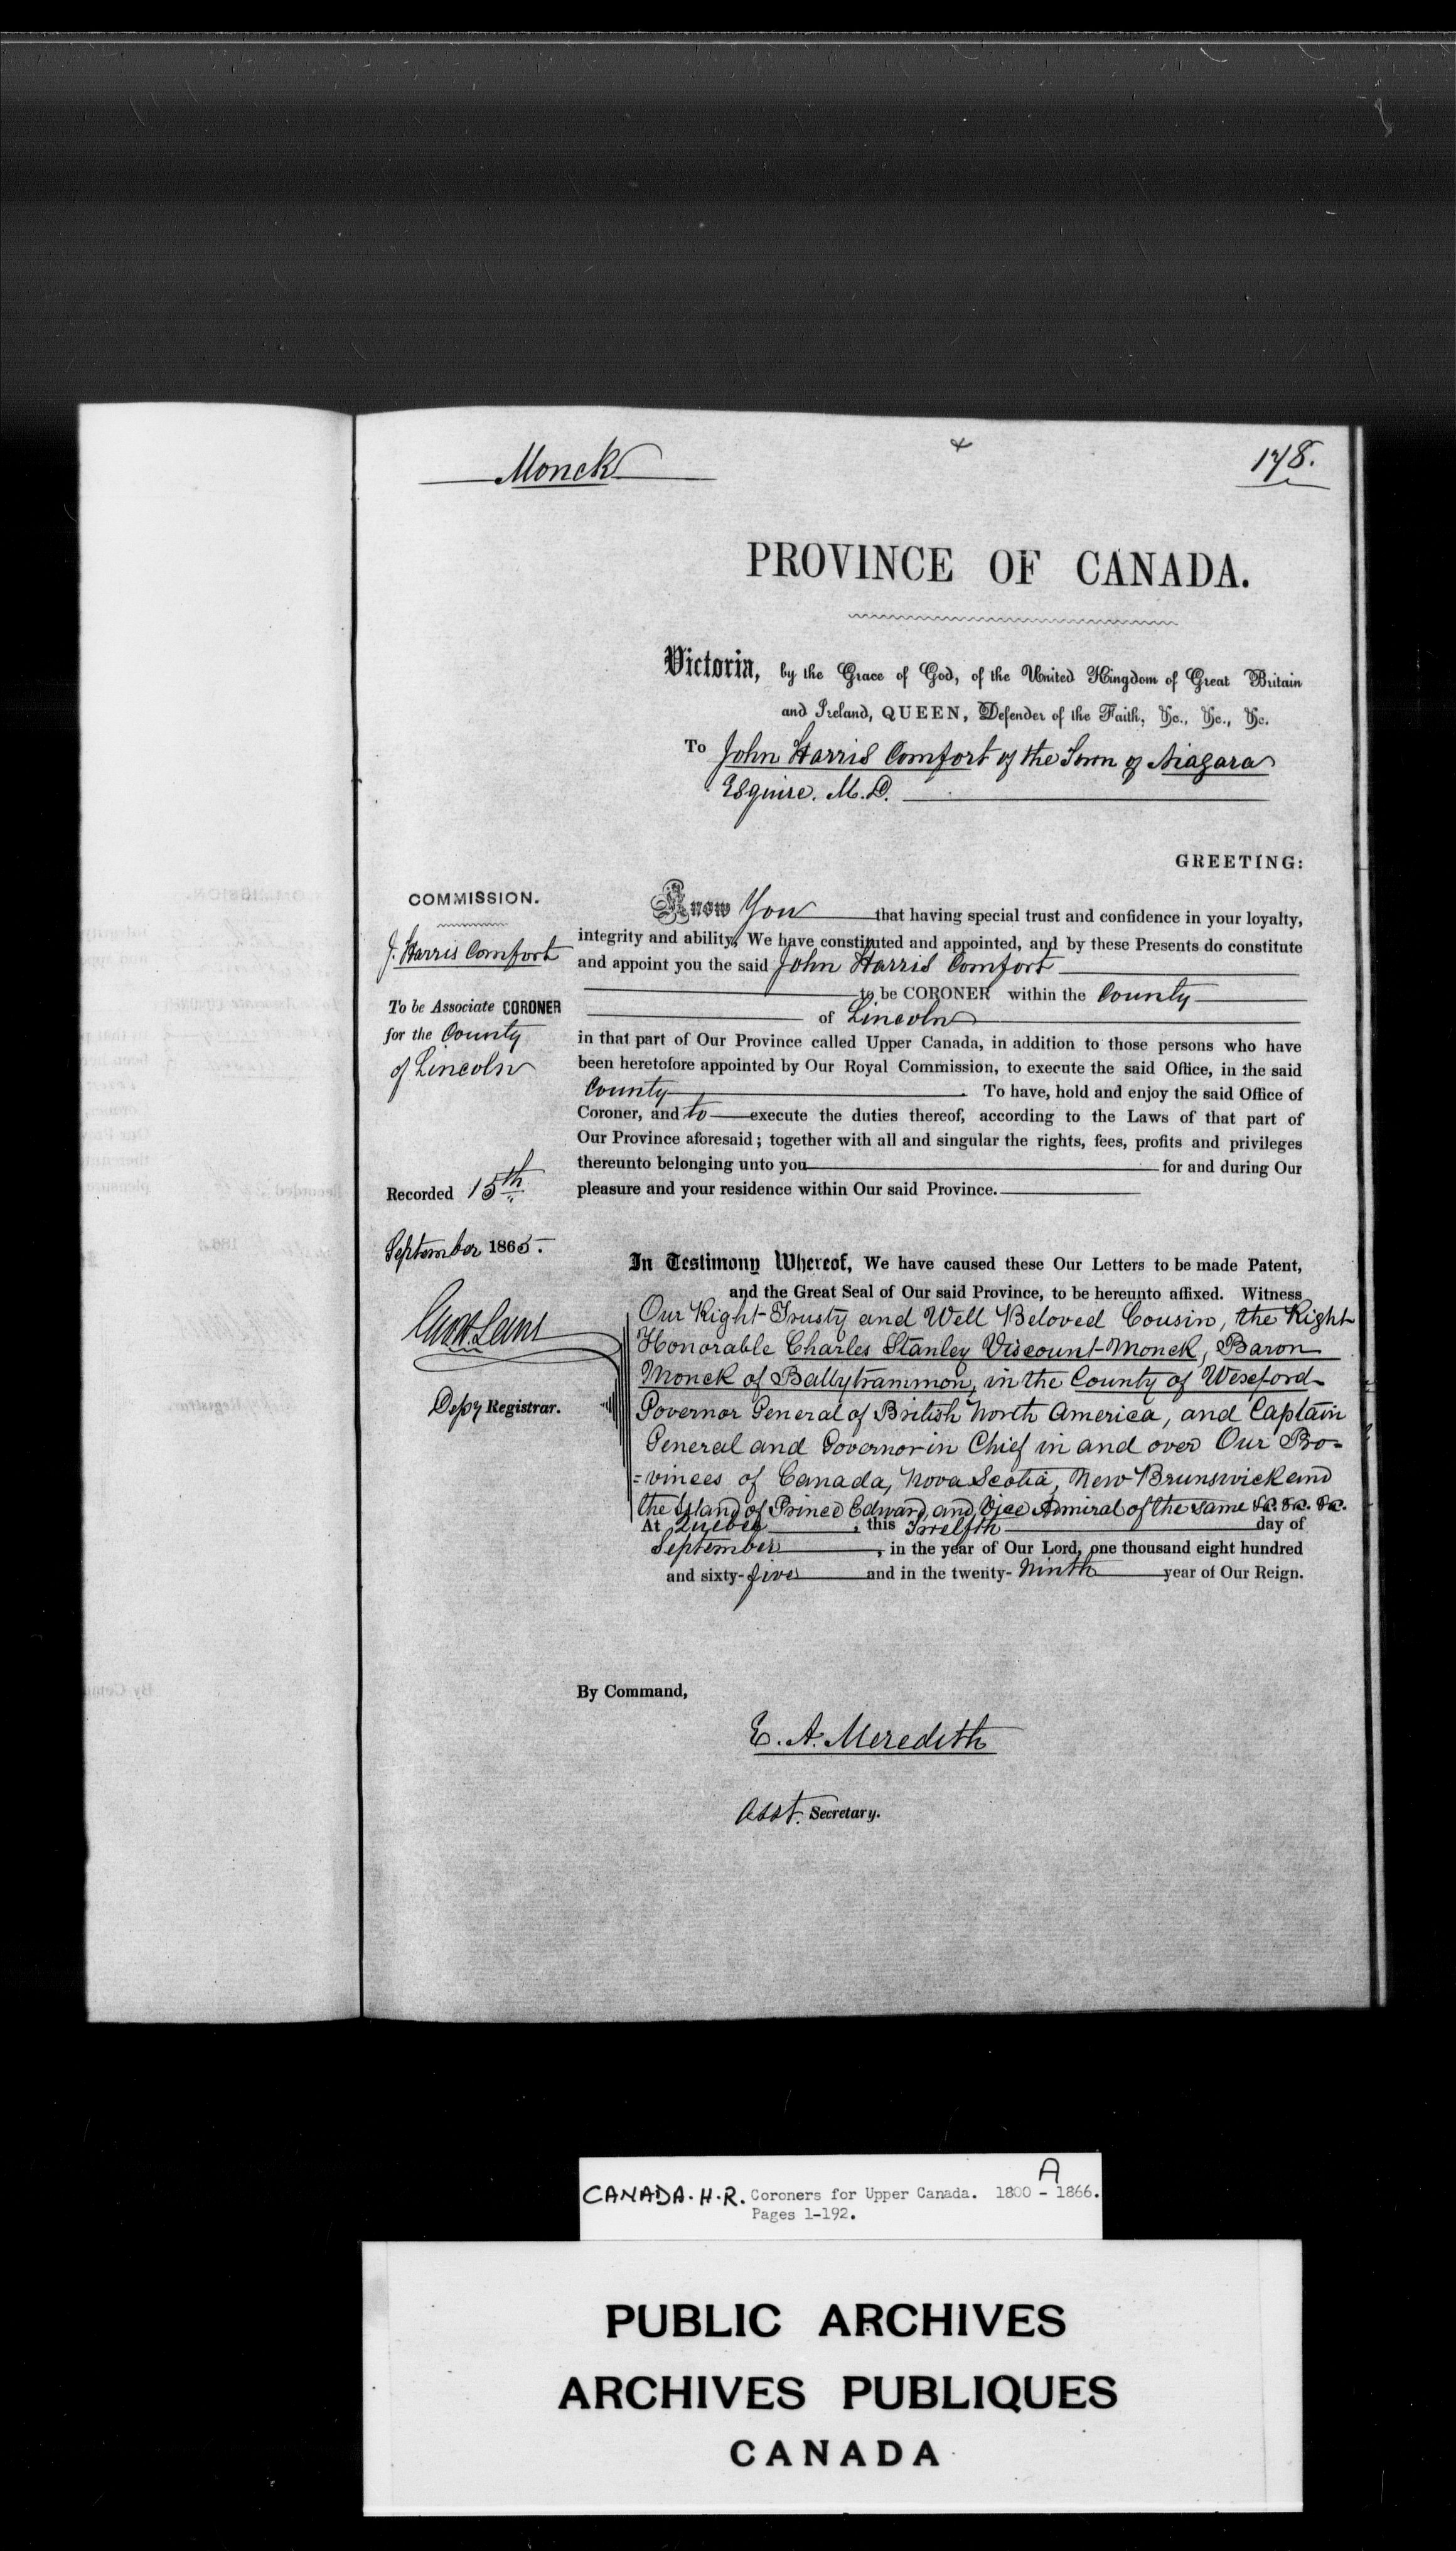 Monck
178.
PROVINCE OF CANADA.
Victoria, by the Grace of God, of the United Kingdom of Great Britain
and Ireland, QUEEN, Defender of the Faith, &c., &c., &c.
To John Harris Comfort of the Town of Niagara
Esquire. M.D.
GREETING:
COMMISSION.
J. Harris Comfort
To be Associate CORONER
for the County
of Lincoln
Recorded 15th
September 1865.
Depy Registrar.
Know You that having special trust and confidence in your loyalty,
integrity and ability, We have constituted and appointed, and by these Presents do constitute
and appoint you the said John Harris Comfort
to be CORONER within the County
of Lincoln
in that part of Our Province called Upper Canada, in addition to those persons who have
been heretofore appointed by Our Royal Commission, to execute the said Office, in the said
County . To have, hold and enjoy the said Office of
Coroner, and to execute the duties thereof, according to the Laws of that part of
Our Province aforesaid; together with all and singular the rights, fees, profits and privileges
thereunto belonging unto you for and during Our
pleasure and your residence within Our said Province.
In Testimony Whereof, We have caused these Our Letters to be made Patent,
and the Great Seal of Our said Province, to be hereunto affixed. Witness
Our Right Trusty and Well Beloved Cousin, the Right
Honorable Charles Stanley Viscount Monck, Baron
Monck of Ballytrammon, in the County of Wexford
Governor General of British North America, and Captain
General and Governor in Chief in and over Our Pro-
=vinces of Canada, Nova Scotia, New Brunswick and
the Island of Prince Edward, and Vice Admiral of the same &c. &c. &c.
At Quebec, this Twelfth day of
September, in the year of Our Lord, one thousand eight hundred
and sixty-five and in the twenty-Ninth year of Our Reign.
By Command,
E. A. Meredith
Asst. Secretary.
CANADA. H. R. Coroners for Upper Canada. 1800 - A 1866.
Pages 1-192.
PUBLIC ARCHIVES
ARCHIVES PUBLIQUES
CANADA